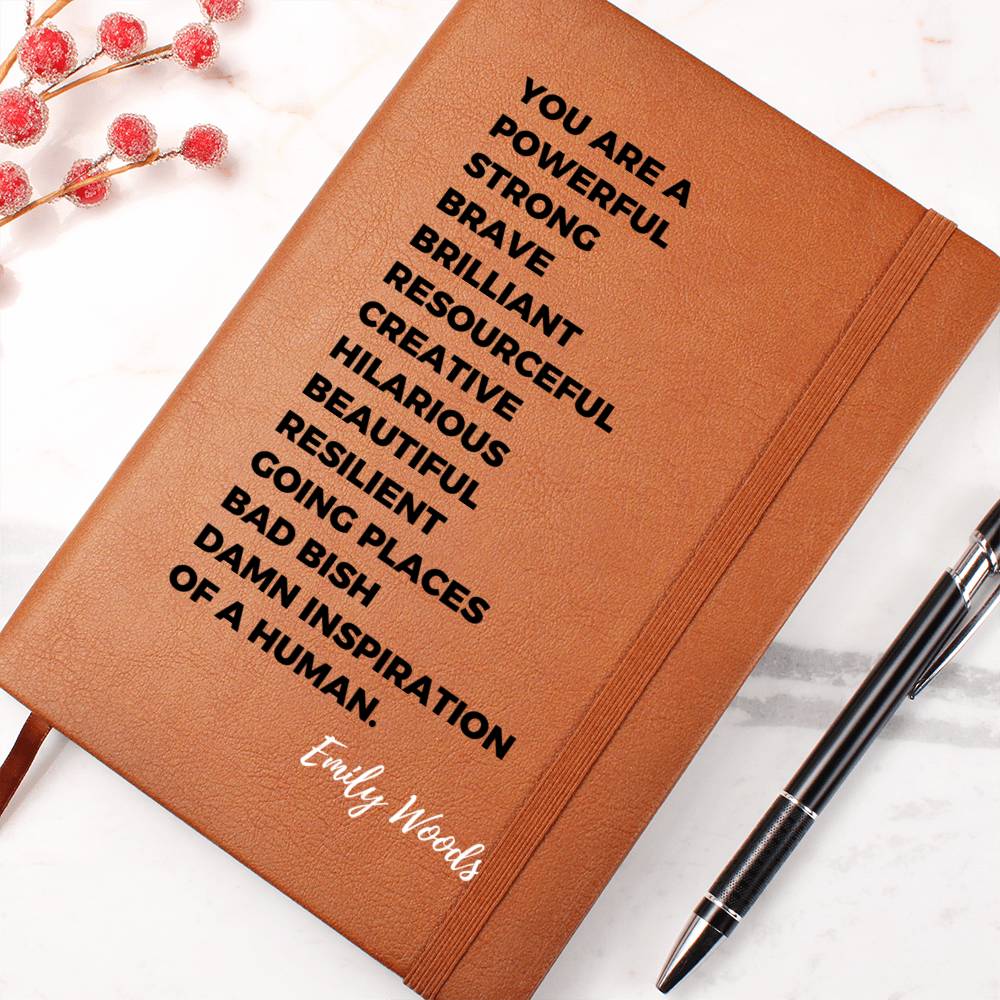 YOU ARE A
POWERFUL
STRONG
BRAVE
BRILLIANT
RESOURCEFUL
CREATIVE
HILARIOUS
BEAUTIFUL
RESILIENT
GOING PLACES
BAD BISH
DAMN INSPIRATION
OF A HUMAN.
Emily Woods